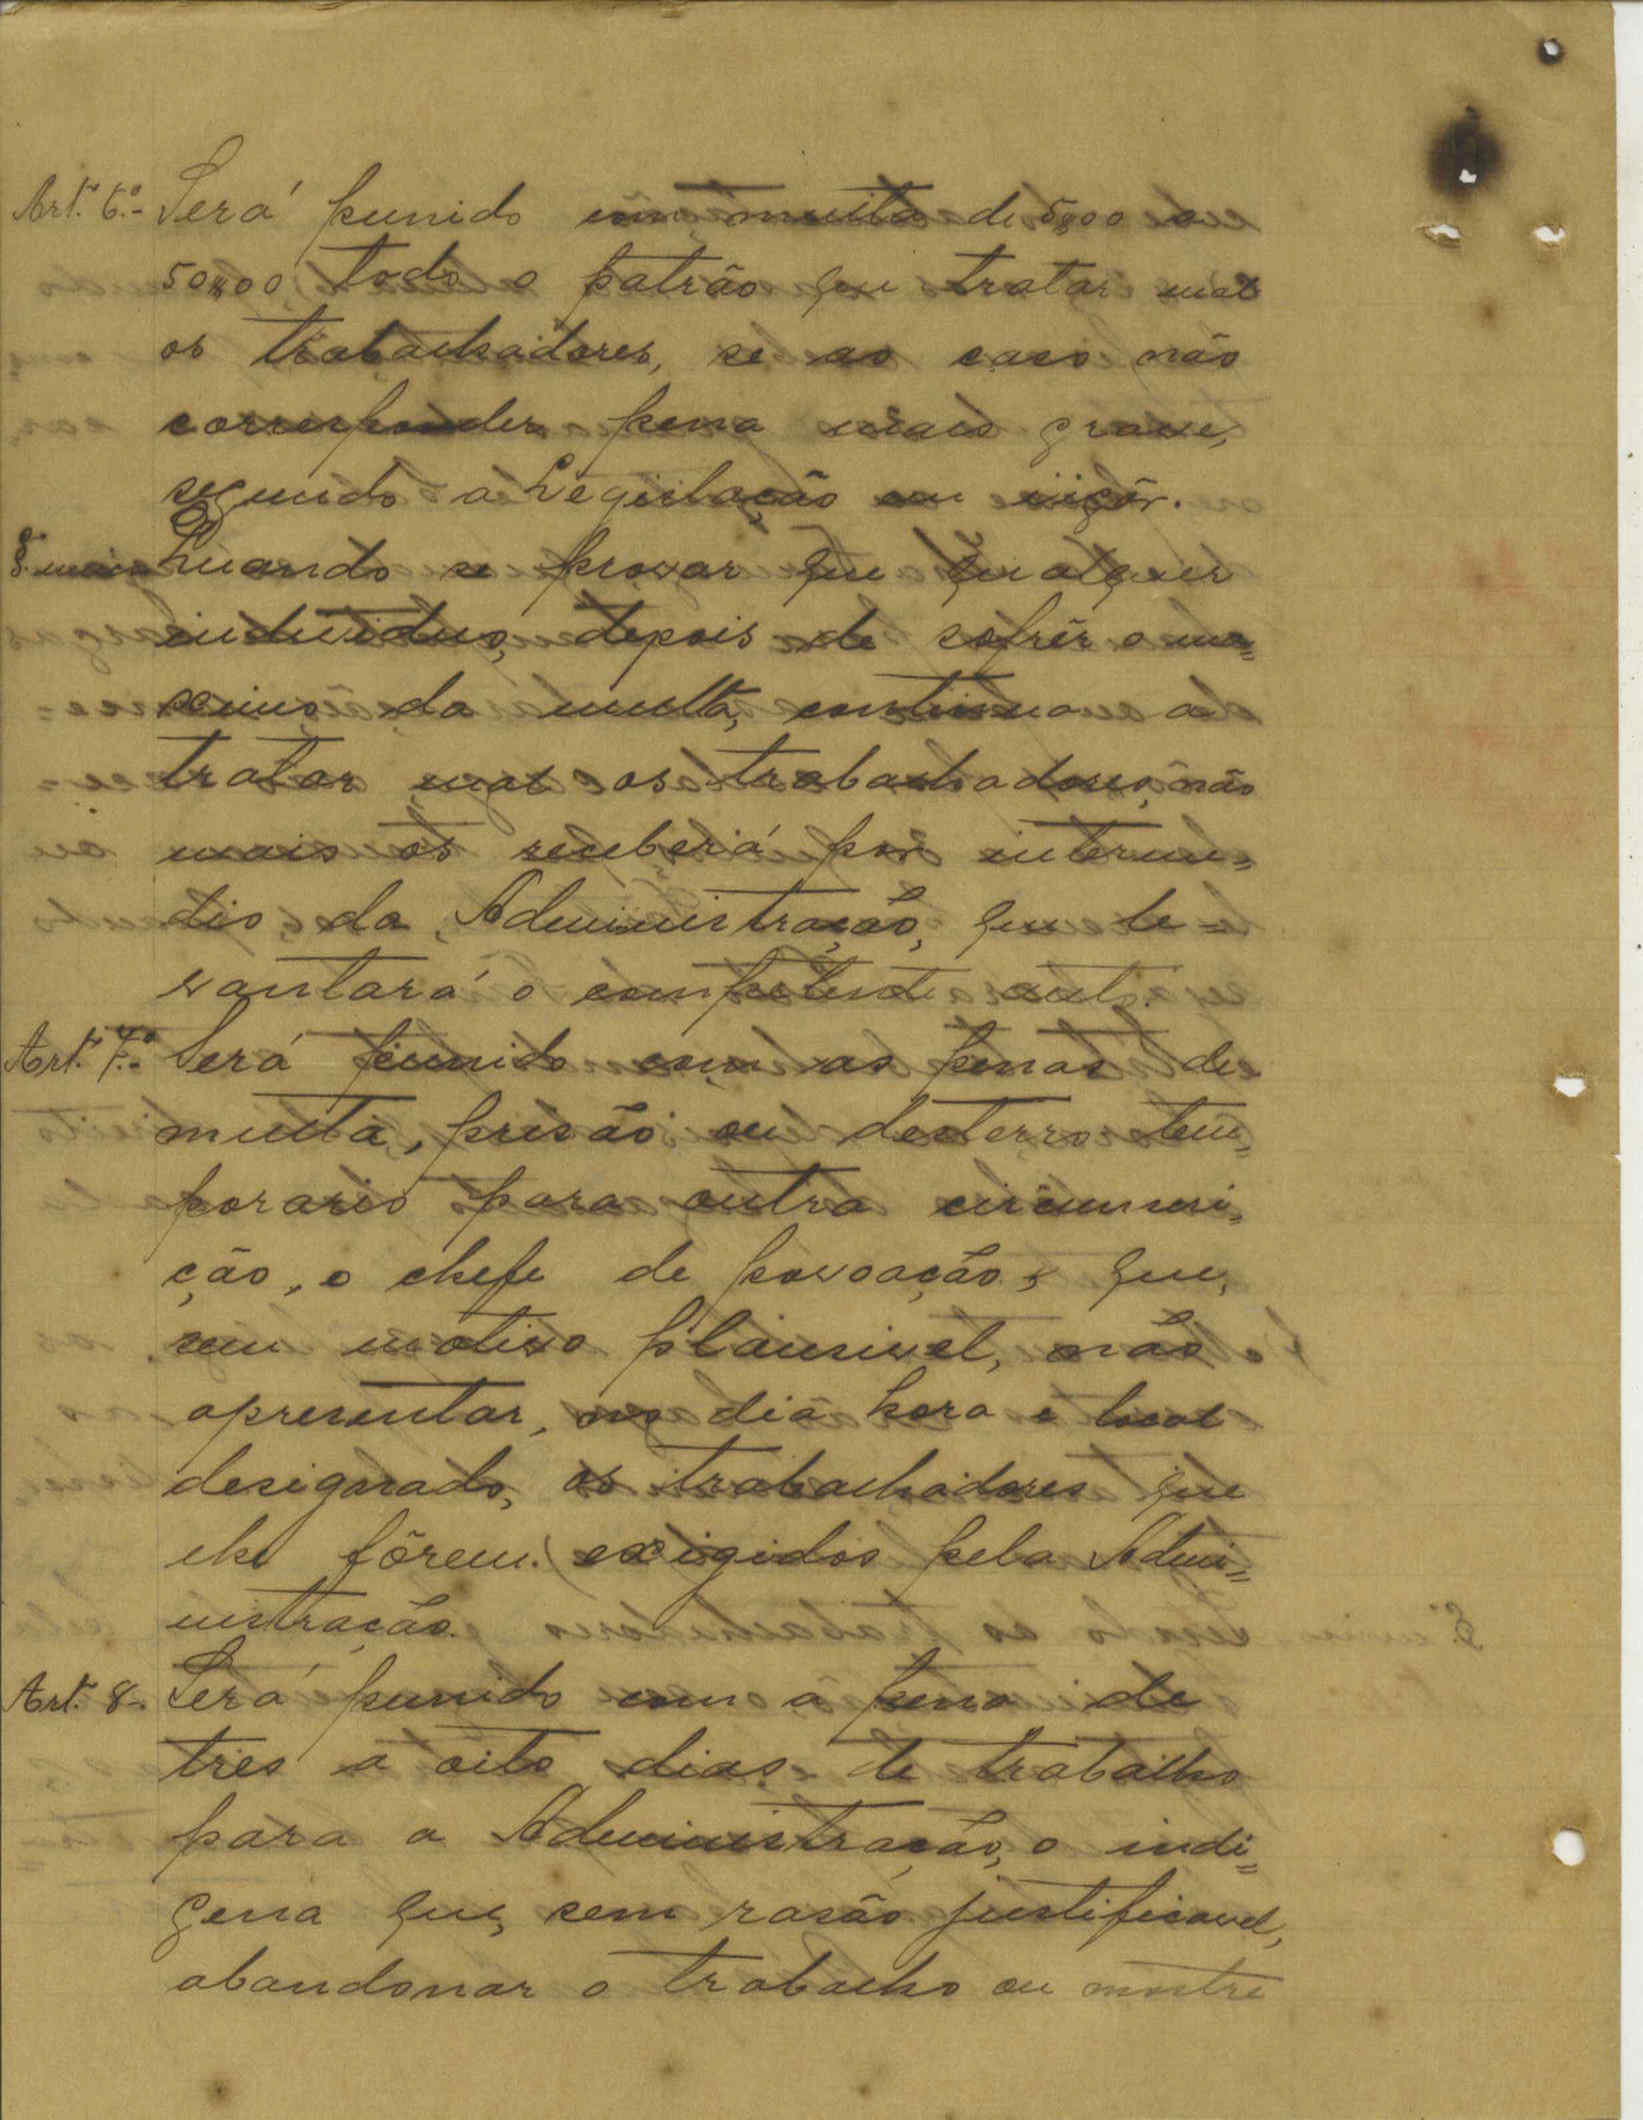 Art.º 6.º- Será punido com multa de 5$00 a
50$00 todo o patrão que tratar mal
os trabalhadores, se ao caso não
corresponder pena mais grave,
segundo a Legislação em vigôr.
§.º unico Quando se provar que qualquer
individuo, depois de sofrêr o ma=
ximo da multa, continua a
tratar mal os trabalhadores, não
mais os receberá por interme=
dio da Administração, que le=
vantará o competente auto.
Art.º 7.º- Será punido com as penas de
multa, prisão ou desterro tem=
porario para outra circunscri=
ção, o chefe de povoação, que,
sem motivo plausivel, não
apresentar, no dia hora e local
designado, os trabalhadores que
lhe fôrem exigidos pela Admi=
nistração.
Art.º 8- Será punido com a pena de
tres a oito dias de trabalho
para a Administração, o indi=
gena que, sem rasão justificavel,
abandonar o trabalho ou mostre